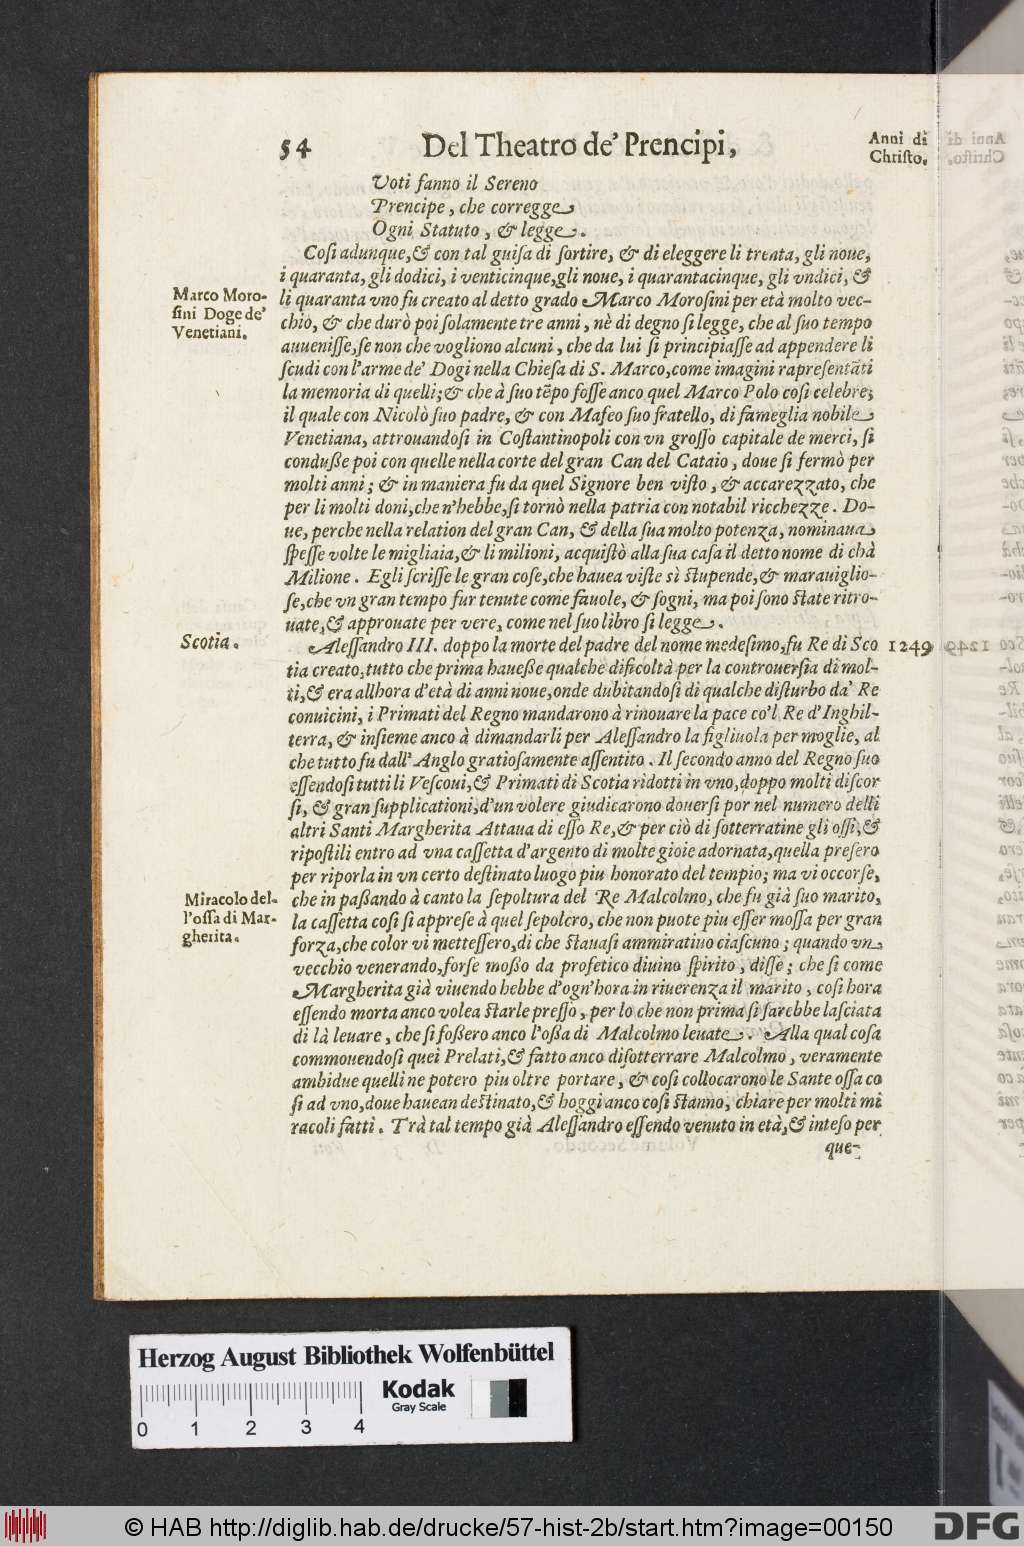 54 Del Theatro de' Prencipi,
Anni di
Christo.
Voti fanno il Sereno
Prencipe, che corregge
Ogni Statuto, & legge.
Cosi adunque, & con tal guisa di sortire, & di eleggere li trenta, gli noue,
i quaranta, gli dodici, i venticinque, gli noue, i quarantacinque, gli vndici, &
Marco Moro-
sini Doge de'
Venetiani.
li quaranta vno fu creato al detto grado Marco Morosini per età molto vec-
chio, & che durò poi solamente tre anni, nè di degno si legge, che al suo tempo
auuenisse, se non che vogliono alcuni, che da lui si principiasse ad appendere li
scudi con l'arme de' Dogi nella Chiesa di S. Marco, come imagini rapresentāti
la memoria di quelli; & che à suo tēpo fosse anco quel Marco Polo cosi celebre;
il quale con Nicolò suo padre, & con Mafeo suo fratello, di fameglia nobile
Venetiana, attrouandosi in Costantinopoli con vn grosso capitale de merci, si
condusse poi con quelle nella corte del gran Can del Cataio, doue si fermò per
molti anni; & in maniera fu da quel Signore ben visto, & accarezzato, che
per li molti doni, che n'hebbe, si tornò nella patria con notabil ricchezze. Do-
ue, perche nella relation del gran Can, & della sua molto potenza, nominaua
spesse volte le migliaia, & li milioni, acquistò alla sua casa il detto nome di chà
Milione. Egli scrisse le gran cose, che hauea viste sì stupende, & marauiglio-
se, che vn gran tempo fur tenute come fauole, & sogni, ma poi sono state ritro-
uate, & approuate per vere, come nel suo libro si legge.
Scotia.
Alessandro III. doppo la morte del padre del nome medesimo, fu Re di Sco
1249
tia creato, tutto che prima hauesse qualche dificoltà per la controuersia di mol-
ti, & era allhora d'età di anni noue, onde dubitandosi di qualche disturbo da' Re
conuicini, i Primati del Regno mandarono à rinouare la pace co'l Re d'Inghil-
terra, & insieme anco à dimandarli per Alessandro la figliuola per moglie, al
che tutto fu dall' Anglo gratiosamente assentito. Il secondo anno del Regno suo
essendosi tutti li Vescoui, & Primati di Scotia ridotti in vno, doppo molti discor
si, & gran supplicationi, d'un volere giudicarono douersi por nel numero delli
altri Santi Margherita Attaua di esso Re, & per ciò di sotterratine gli ossi, &
ripostili entro ad vna cassetta d'argento di molte gioie adornata, quella presero
per riporla in vn certo destinato luogo piu honorato del tempio; ma vi occorse,
Miracolo del-
l'ossa di Mar-
gherita.
che in passando à canto la sepoltura del Re Malcolmo, che fu già suo marito,
la cassetta cosi si apprese à quel sepolcro, che non puote piu esser mossa per gran
forza, che color vi mettessero, di che stauasi ammiratiuo ciascuno; quando vn
vecchio venerando, forse mosso da profetico diuino spirito, disse; che si come
Margherita già viuendo hebbe d'ogn'hora in riuerenza il marito, cosi hora
essendo morta anco volea starle presso, per lo che non prima si sarebbe lasciata
di là leuare, che si fossero anco l'ossa di Malcolmo leuate. Alla qual cosa
commouendosi quei Prelati, & fatto anco disotterrare Malcolmo, veramente
ambidue quelli ne potero piu oltre portare, & cosi collocarono le Sante ossa co
si ad vno, doue hauean destinato, & hoggi anco cosi stanno, chiare per molti mi
racoli fatti. Trà tal tempo già Alessandro essendo venuto in età, & inteso per
que-
Herzog August Bibliothek Wolfenbüttel
Kodak
Gray Scale
0 1 2 3 4
© HAB http://diglib.hab.de/drucke/57-hist-2b/start.htm?image=00150
DFG